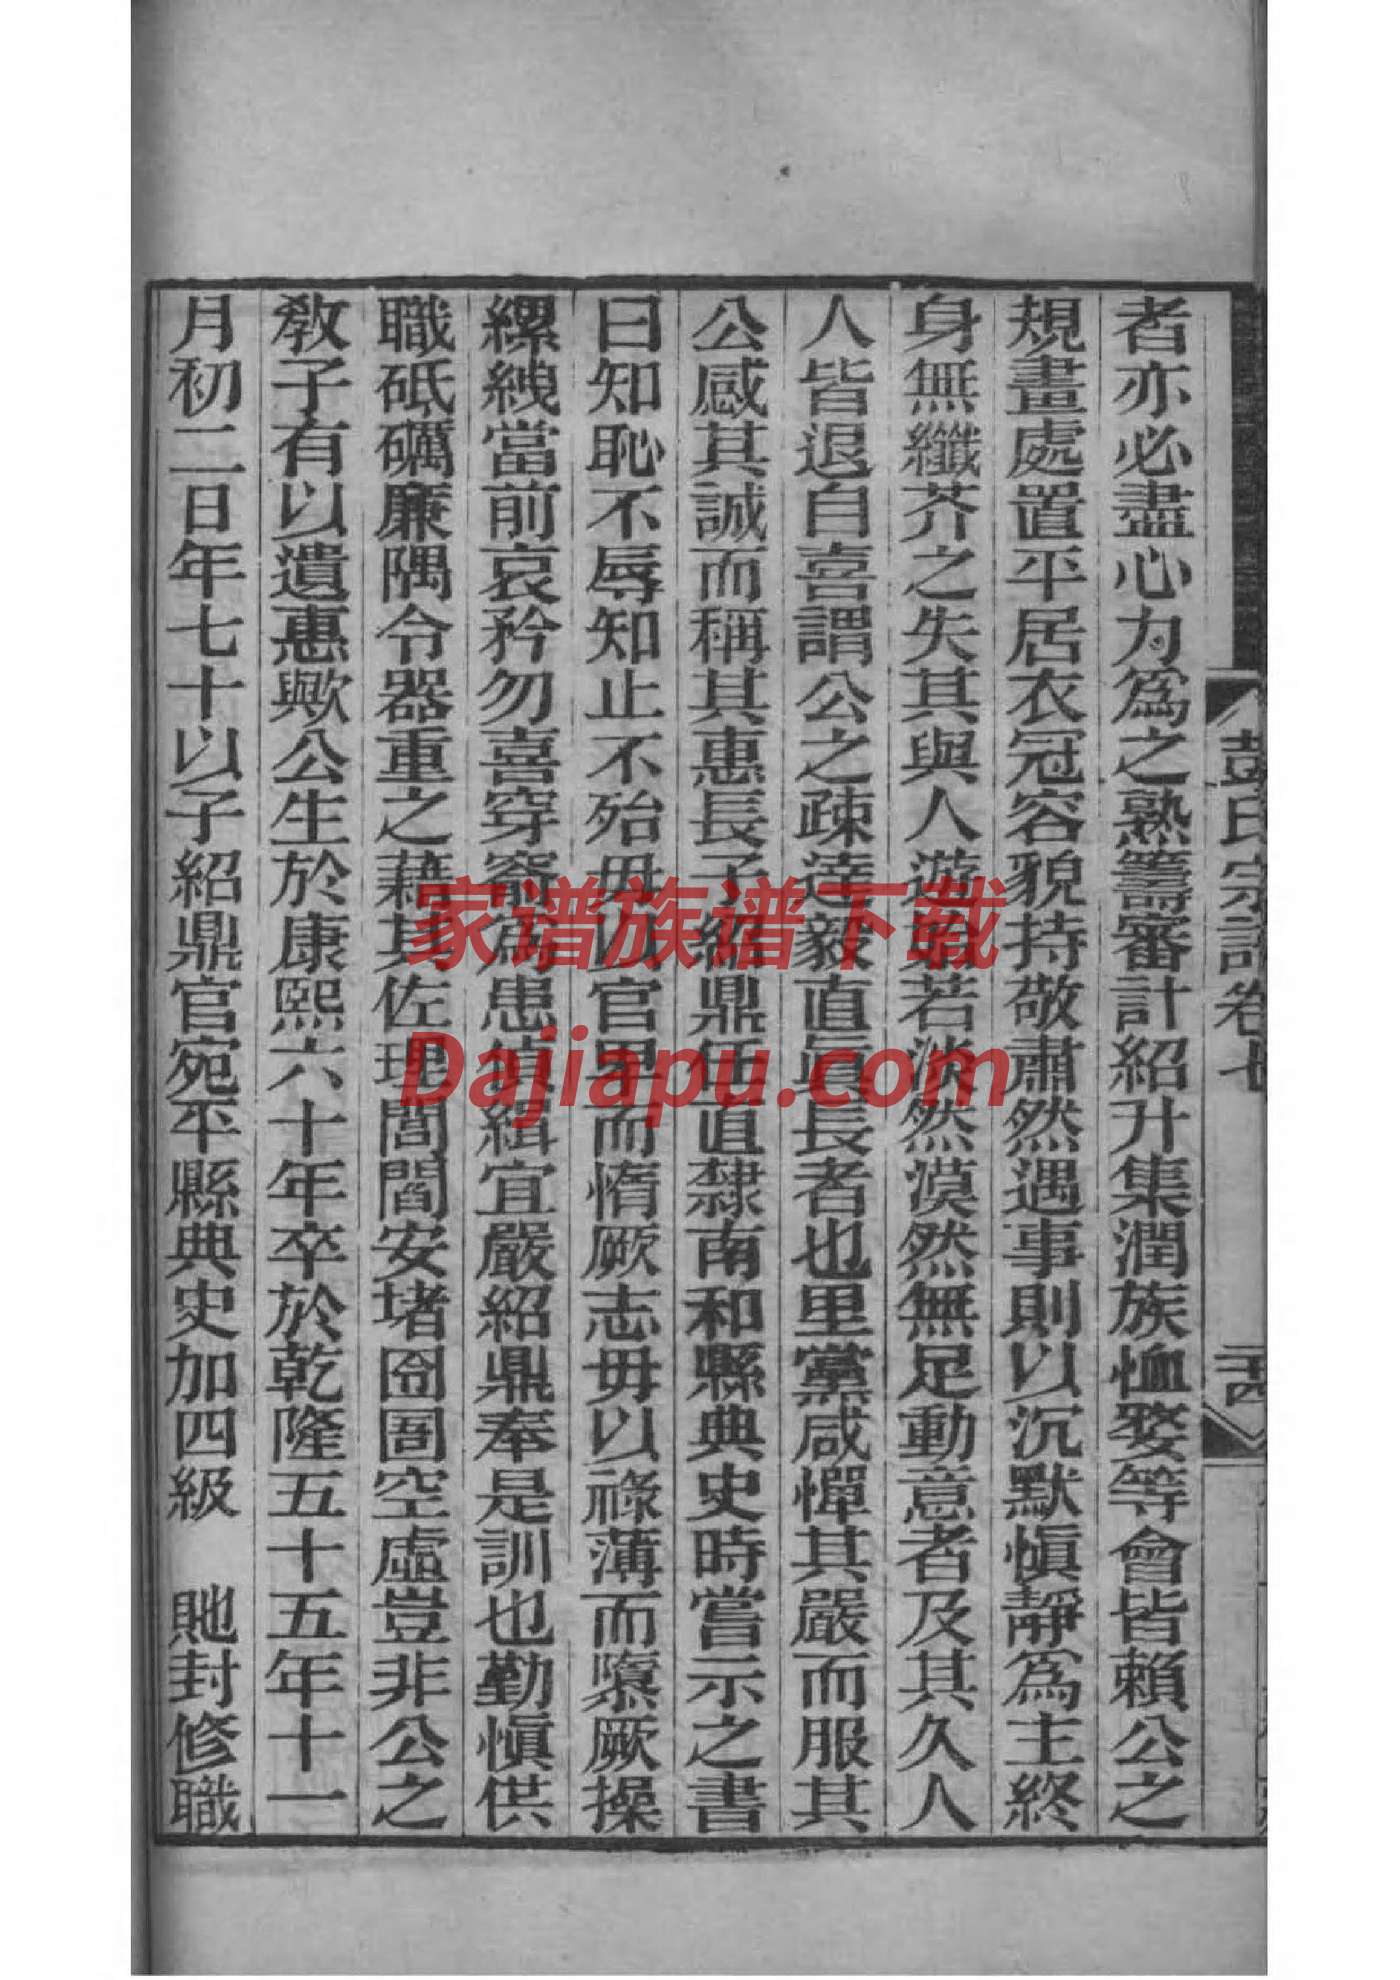 者亦必盡心力爲之熟籌審計紹升集潤族恤婺等會皆賴公之
規畫處置平居衣冠容貌持敬肅然遇事則以沉默愼靜爲主終
身無纖芥之失其與人遊如若淡然漠然無足動意者及其久人
人皆退自喜謂公之疎達毅直眞長者也里黨咸憚其嚴而服其
公感其誠而稱其惠長子紹鼎任直隸南和縣典史時嘗示之書
曰知恥不辱知止不殆毋以官卑而惰厥志毋以祿薄而隳厥操
縲絏當前哀矜勿喜穿窬爲患偵緝宜嚴紹鼎奉是訓也勤愼供
職砥礪廉隅令器重之藉其佐理閭閻安堵囹圄空虛豈非公之
敎子有以遺惠歟公生於康熙六十年卒於乾隆五十五年十一
月初二日年七十以子紹鼎官宛平縣典史加四級 貤封修職
彭氏宗譜卷七
二十四
家谱族谱下载
Dajiapu.com